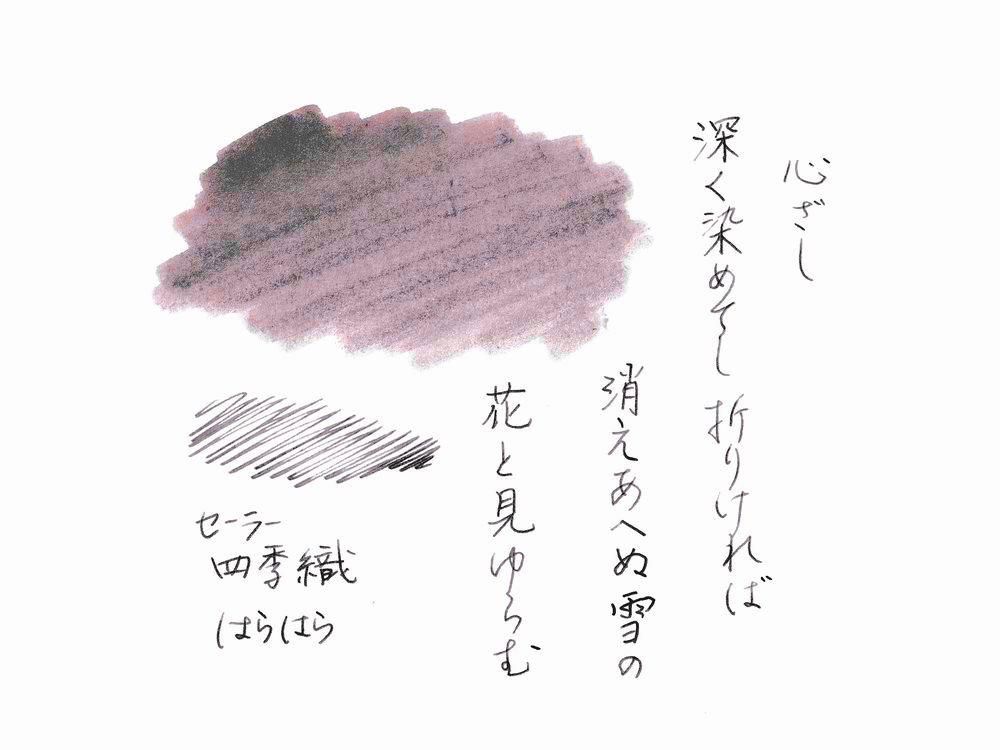 心ざし
深く染めてし 折りければ
消えあへぬ雪の
花と見ゆらむ
セーラー
四季織
はらはら